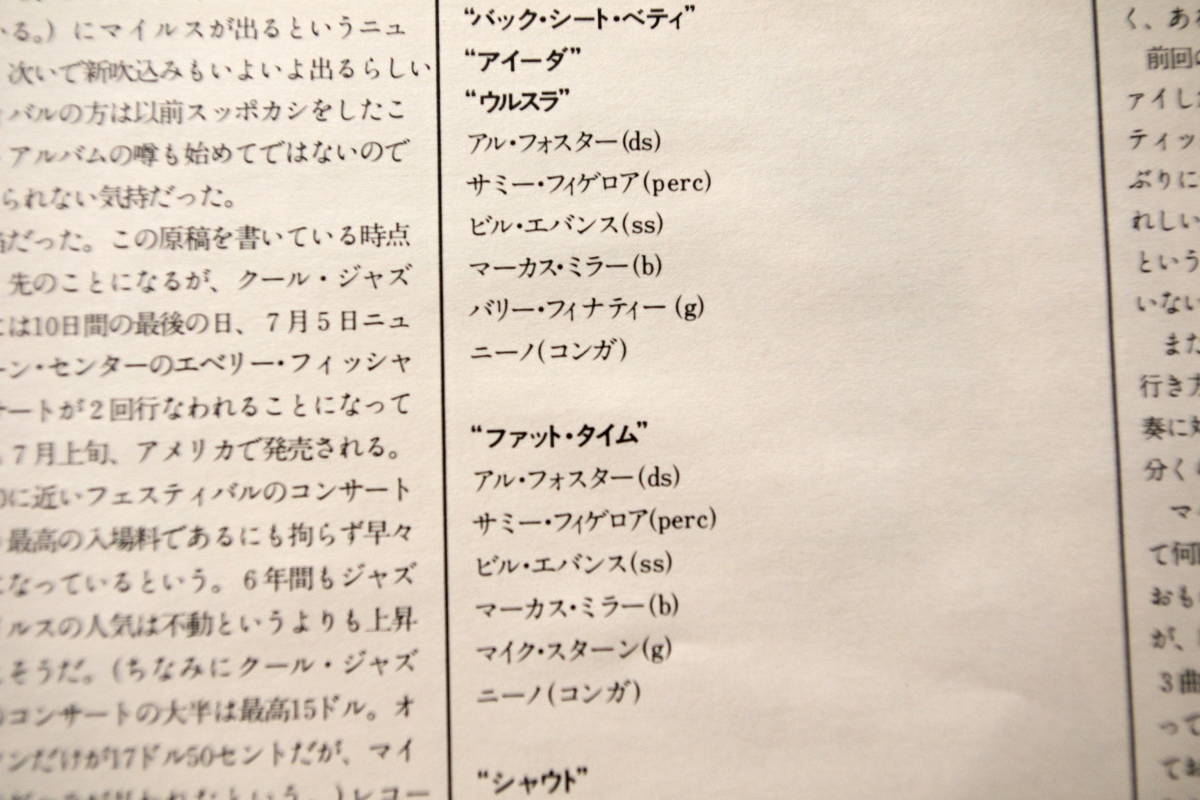 いる。)にマイルスが出るというニュ
次いで新吹込みもいよいよ出るらしい
バルの方は以前スッポカシをしたこ
アルバムの噂も始めてではないので
られない気持だった。
だった。この原稿を書いている時点
先のことになるが、クール・ジャズ
には10日間の最後の日、7月5日ニュ
ーン・センターのエベリー・フィッシャ
サートが2回行なわれることになって
7月上旬、アメリカで発売される。
0に近いフェスティバルのコンサート
最高の入場料であるにも拘らず早々
になっているという。6年間もジャズ
イルスの人気は不動というよりも上昇
しそうだ。(ちなみにクール・ジャズ
のコンサートの大半は最高15ドル。オ
ンだけが17ドル50セントだが、マイ
われたという。)レコー
“バック・シート・ベティ”
“アイーダ”
“ウルスラ”
アル・フォスター(ds)
サミー・フィゲロア(perc)
ビル・エバンス(ss)
マーカス・ミラー(b)
バリー・フィナティー(g)
ニーノ(コンガ)
“ファット・タイム”
アル・フォスター(ds)
サミー・フィゲロア(perc)
ビル・エバンス(ss)
マーカス・ミラー(b)
マイク・スターン(g)
ニーノ(コンガ)
“シャウト”
く、あ
前回の
ァイし
ティッ
ぶりに
れしい
という
いない
また
行き方
奏に対
分く
マ
て何
おも
が、
3曲
って
てお